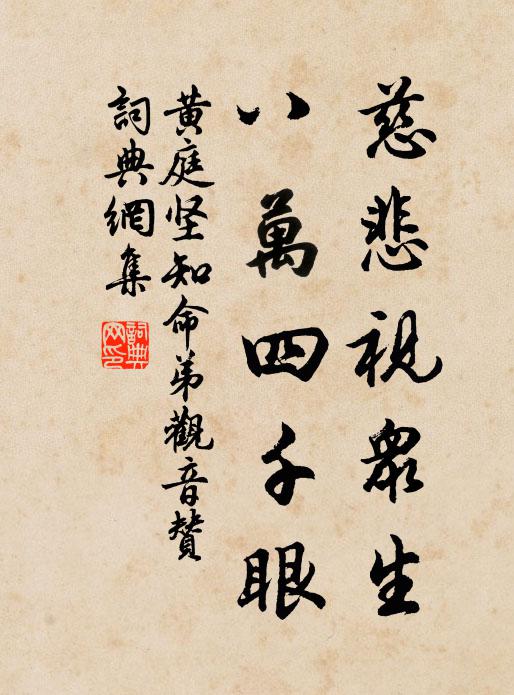 慈悲視衆生
八萬四千眼
黄庭坚知命弟觀音贊
詞典網集
詞典网印